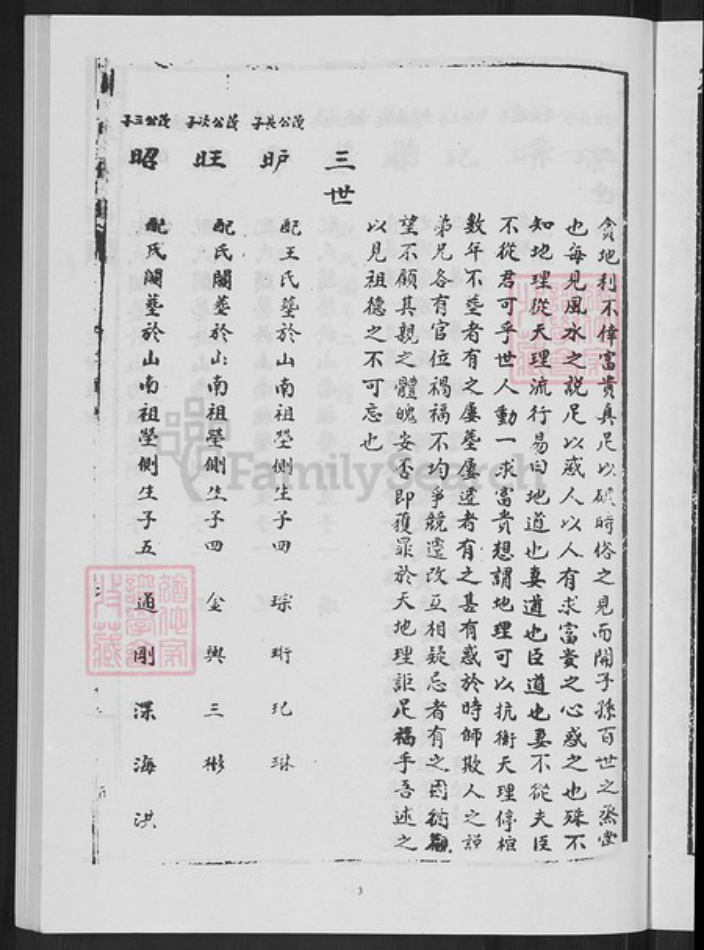 貪地利不擇富貴真足以破時俗之見而開子孫百世之
也每見風水之說足以惑人以人有求富貴之心惑之也殊不
知地理從天理流行易曰地道也妻道也臣道也妻不從夫臣
不從君可乎世人動一求富貴想謂地理可以抗衡天理停棺
數年不塟者有之屢塟屢遷者有之甚有惑於時師欺人之
弟兄各有官位禍福不均爭競遷改互相疑忌者有之
望不顧其親之體魄安否即獲罪於天地理詎足福乎吾述之
以見祖德之不可忘也
三世
茂公長子
昈 配王氏塟於山南祖塋側生子四 琮 珩 玘 琳
茂公次子
旺 配氏闕塟於山南祖塋側生子四 金 興 三 彬
茂公三子
昭 配氏闕塟於山南祖塋側生子五 通 剛 深 海 洪
FamilySearch
3